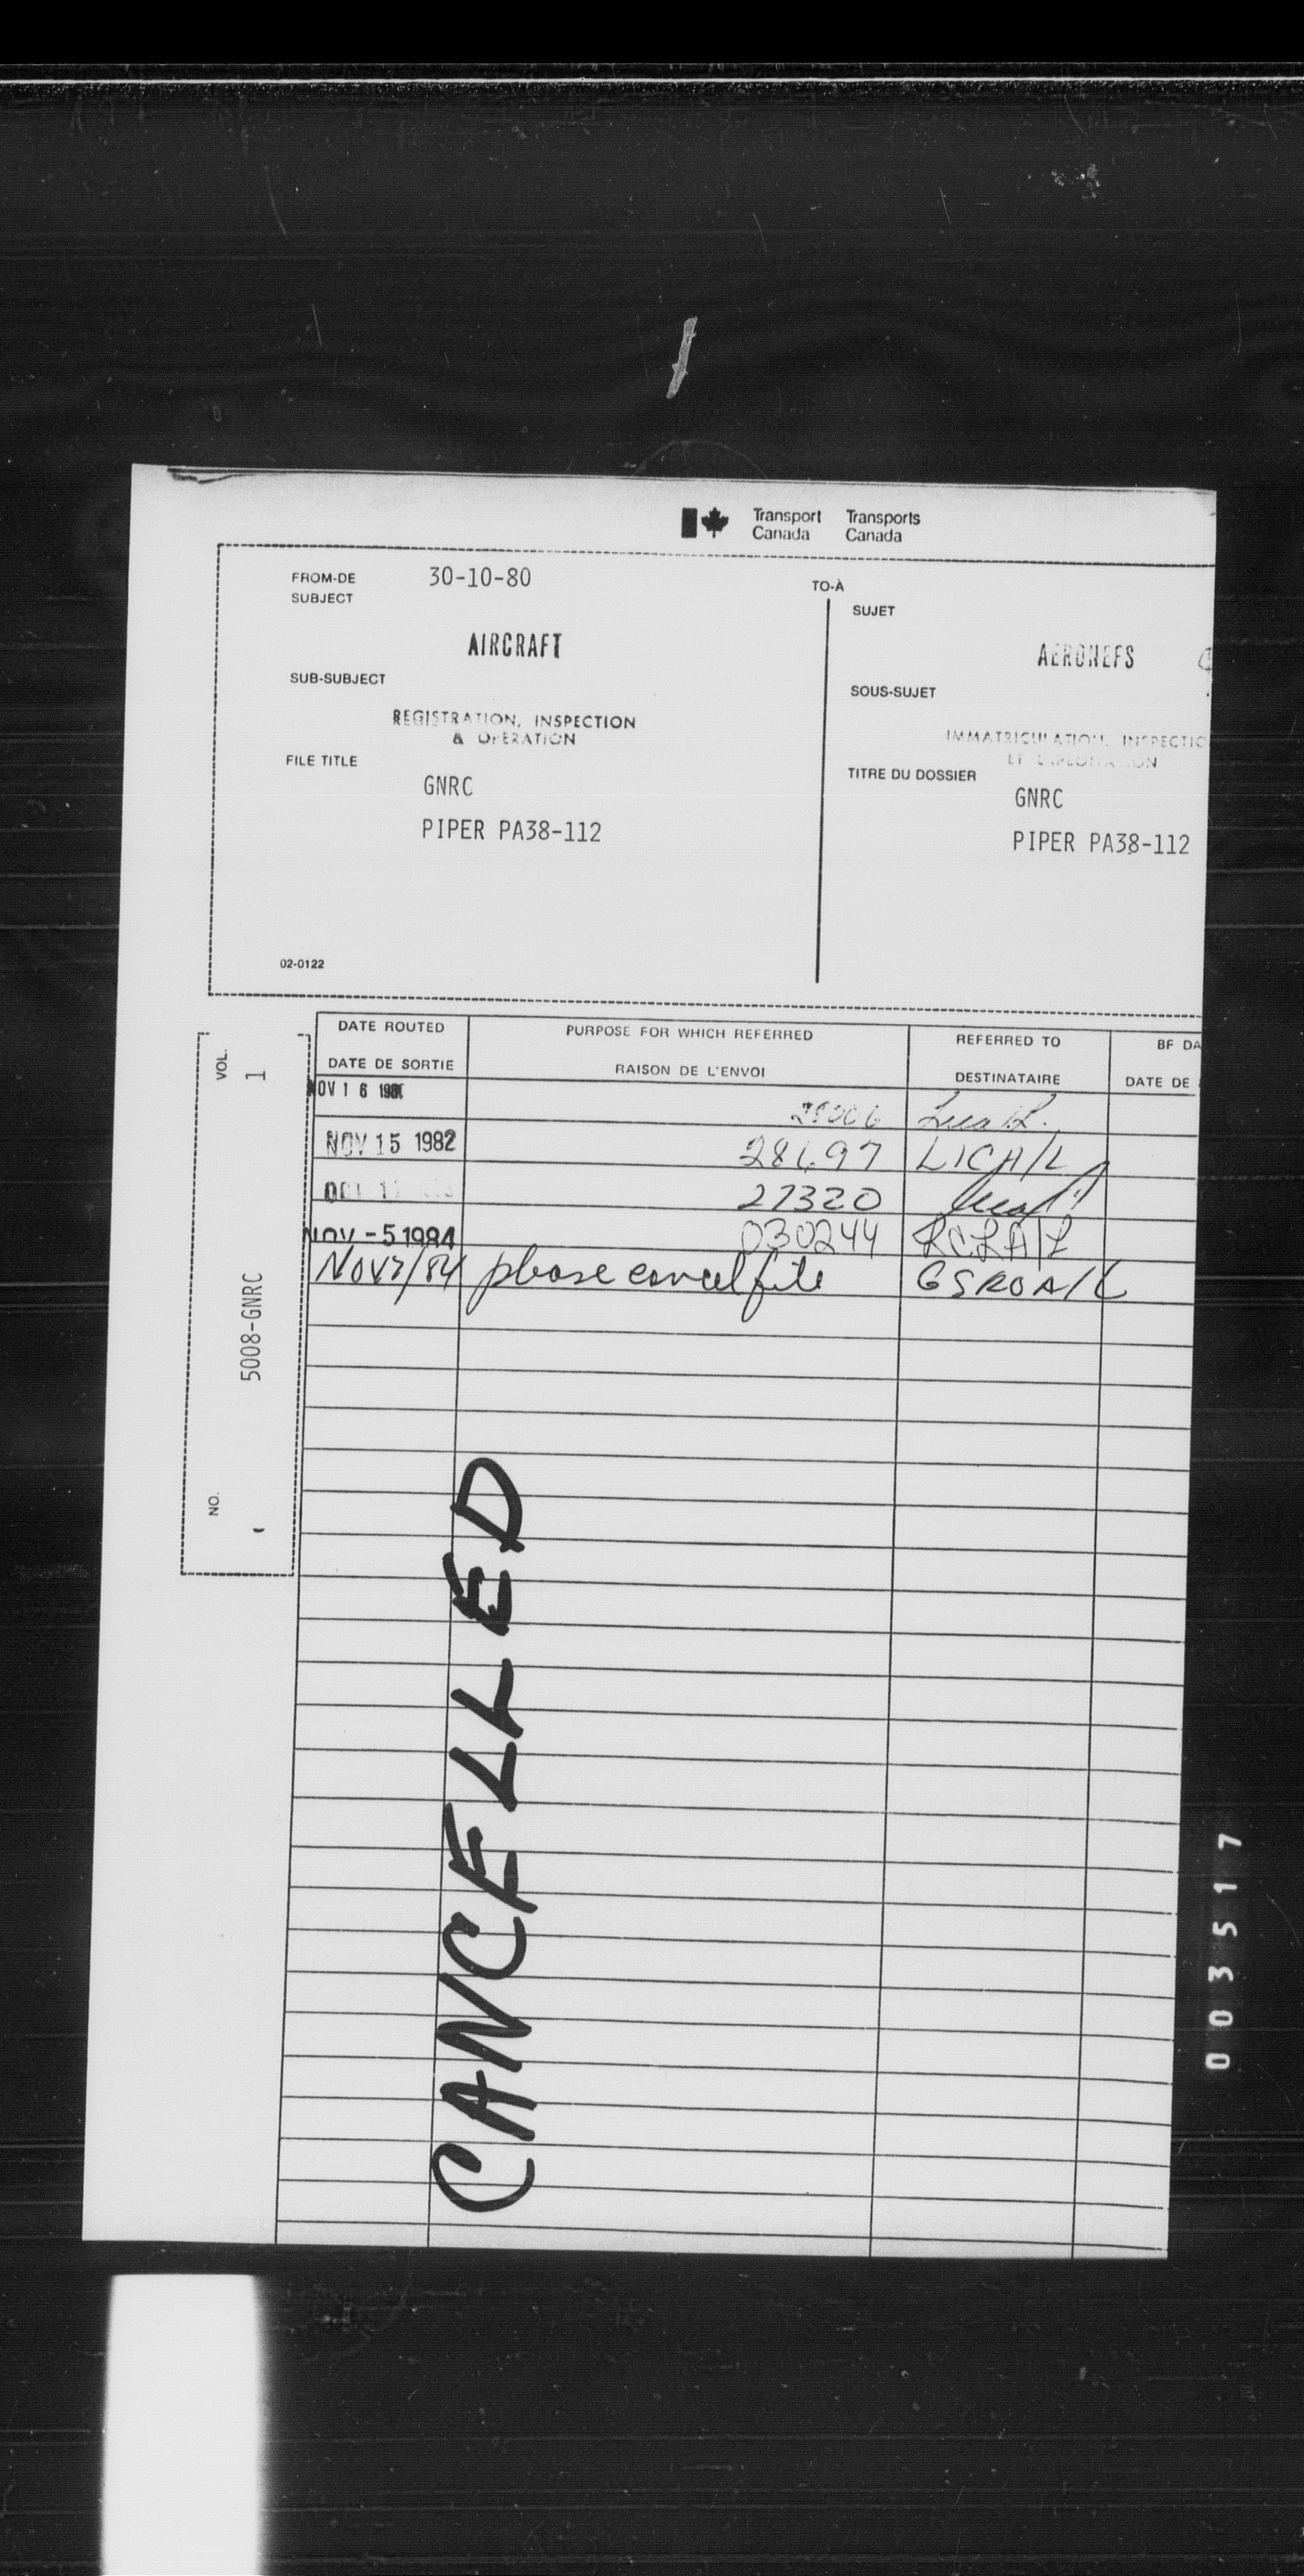 Transport Canada
Transports Canada
FROM-DE 30-10-80
TO-À
SUBJECT
AIRCRAFT
SUB-SUBJECT
REGISTRATION, INSPECTION
& OPERATION
FILE TITLE
GNRC
PIPER PA38-112
02-0122
SUJET
AERONEFS
SOUS-SUJET
IMMATRICULATION, INSPECTIO
ET EXPLOITATION
TITRE DU DOSSIER
GNRC
PIPER PA38-112
VOL. 1
5008-GNRC
NO.
DATE ROUTED
DATE DE SORTIE
PURPOSE FOR WHICH REFERRED
RAISON DE L'ENVOI
REFERRED TO
DESTINATAIRE
BF DA
DATE DE
NOV 16
NOV 15 1982 28697 LICA/L
27320
NOV -5 1984 030244
Nov7/84 please cancel file GSROA/L
CANCELLED
003517